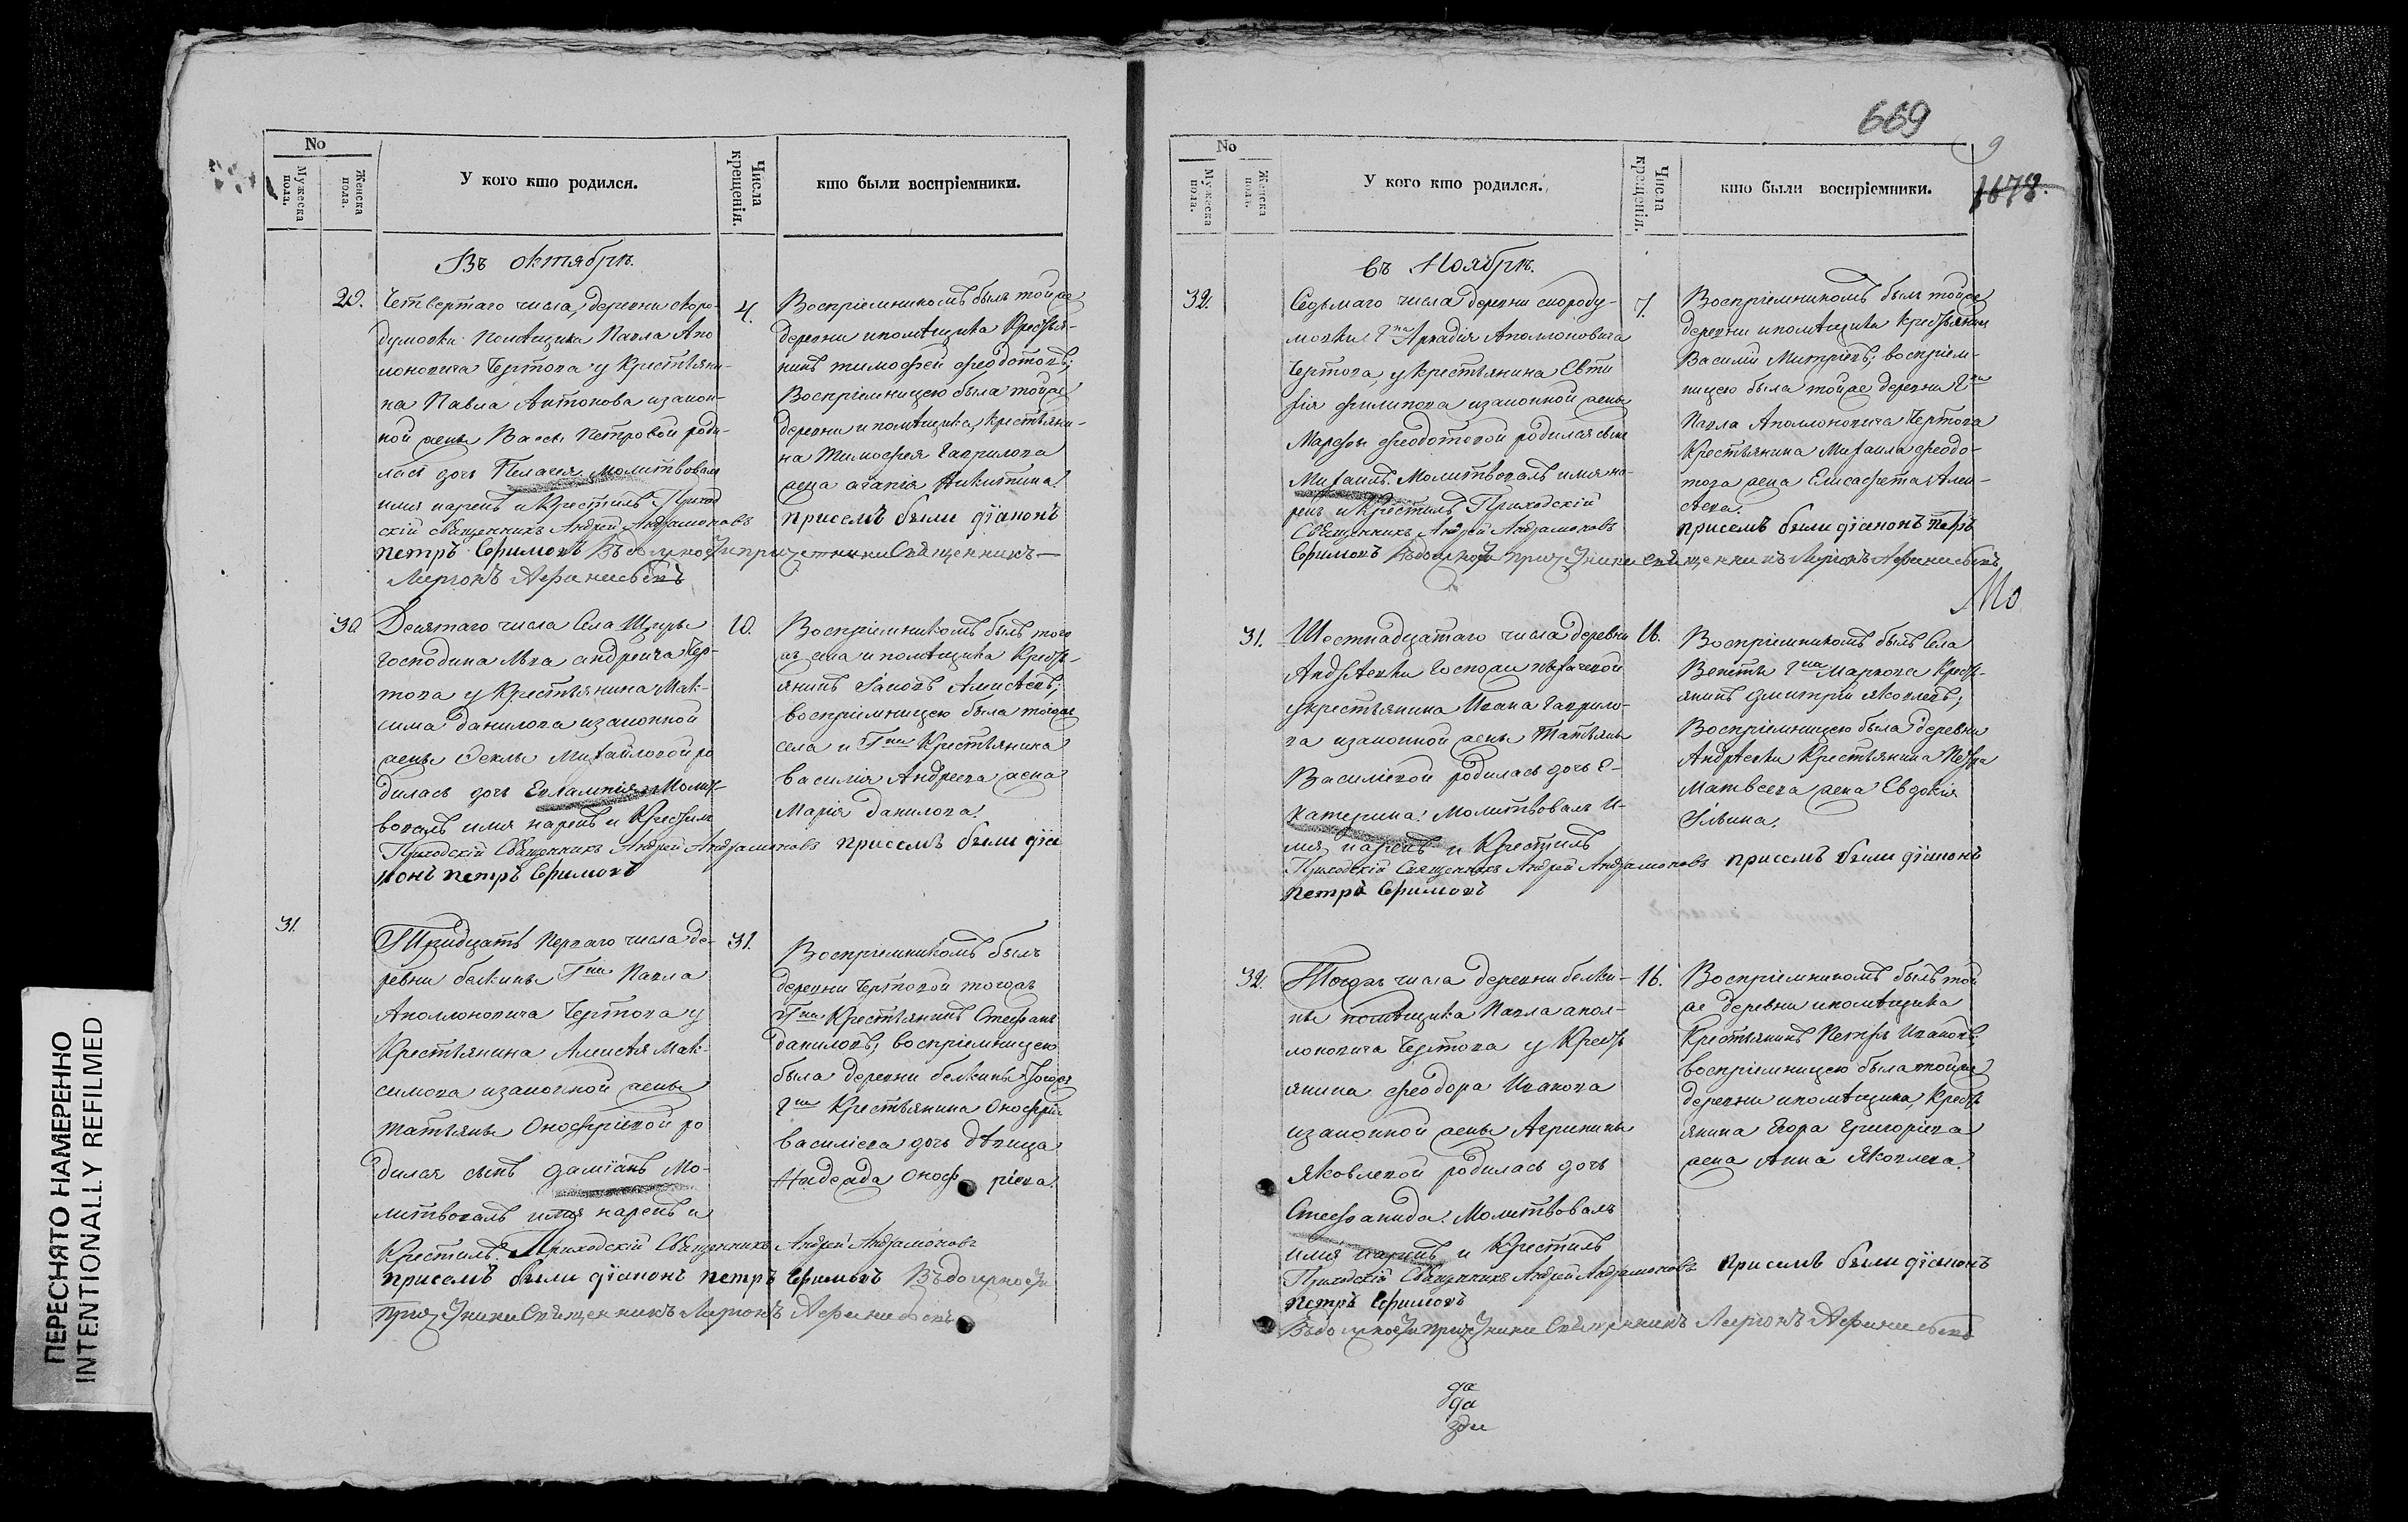 ПЕРЕСНЯТО НАМЕРЕННО
INTENTIONALLY REFILMED
No
Мужеска пола.
Женска пола.
У кого кто родился.
Числа крещенія.
кто были воспріемники.
Въ октябрѣ.
29.
Четвертаго числа, деревни скоро-
думовки помѣщика Павла Апо
лоновича Чертова у крестьяни-
на Павла Антонова изакон-
ной жены Вассы Петровой роди-
лась дочь Пелагея молитвовалъ
имя нарекъ и крестилъ Приход
скій священникъ Андрей Андрамоновъ
петръ Ефимовъ Въ должности причетника Священникъ
Ларіонъ Афанасьевъ
4.
Воспріемникомъ былъ тойже
деревни ипомѣщика Крестья-
нинъ тимофей феодотовъ;
Воспріемницею была тойже
деревни и помѣщика, крестьяни-
на Тимофея Гаврилова
жена агапія Никитина.
присемъ были діаконъ
30
Десятаго числа Села Щучья
господина Льва андреича Чер-
това у крестьянина Мак-
сима данилова изаконной
жены Феклы Михайловой ро
дилась дочь Евлампія Молит-
вовалъ имя нарекъ и Крестилъ
Приходскій Священникъ Андрей Андрамоновъ присемъ были діа
конъ петръ Ефимовъ
10.
Воспріемникомъ былъ того
жъ села и помѣщика Кресть-
янинъ Іаковъ Алексѣевъ;
воспріемницею была тогожъ
села и Гна Крестьянина
василія Андреева жена
Марія данилова.
31.
Тридцать перваго числа де-
ревни белкины Гна Павла
Аполлоновича Чертова у
Крестьянина Алексѣя Мак-
симова изаконной жены
татьяны Онофріевой ро
дился сынъ даміанъ Мо-
литвовалъ имя нарекъ и
Крестилъ. Приходскій Священникъ Андрей Андрамоновъ
присемъ были діаконъ петръ Ефимовъ Въ должности
причетника Священникъ Ларіонъ Афанасьевъ
31.
Воспріемникомъ былъ
деревни Чертовой тогожъ
Гна Крестьянинъ Стефанъ
даниловъ, воспріемницею
была деревни белкины тогожъ
Гна Крестьянина Онофрія
василіева дочь дѣвица
Надежда Онофріева.
669
9
1678.
No
Мужеска пола.
Женска пола.
У кого кто родился.
Числа крещенія.
кто были воспріемники.
въ Ноябрѣ.
32.
Седьмаго числа деревни скороду-
мовки Гна Аркадія Аполлоновича
Чертова, укрестьянина Евти
хія филипова изаконной жены
Марфы феодотовой родился сынъ
Михаилъ. Молитвовалъ имя на-
рекъ и Крестилъ Приходскій
Священникъ Андрей Андрамоновъ
Ефимовъ Въ должности причетника Священникъ Ларіонъ Афанасьевъ
7.
Воспріемникомъ былъ тойже
деревни ипомѣщика крестьянинъ
Василій Митріевъ; воспріем-
ницею была тойже деревни Гна
Павла Аполлоновича Чертова
Крестьянина Михаила феодо-
това жена Елисафета Алек-
сѣева.
присемъ были діаконъ петръ
Мо
31.
Шестнадцатаго числа деревни
Андрѣевки Госпожи
укрестьянина Ивана Гаврило-
ва изаконной жены Татьяны
Василіевой родилась дочь Е-
катерина. Молитвовалъ И-
мя нарекъ и Крестилъ
Приходскій Священникъ Андрей Андрамоновъ присемъ были діаконъ
петръ Ефимовъ
16.
Воспріемникомъ былъ Села
Гна Маркова Кресть-
янинъ дмитрій яковлевъ;
Воспріемницею была деревни
Андрѣевки Крестьянина Петра
Матвеева жена Евдокія
Ильина.
32.
Тогожъ числа деревни белки-
ны помѣщика Павла апол-
лоновича Чертова у Крест
янина феодора Иванова
изаконной жены Агрипины
Яковлевой родилась дочь
Стефанида. Молитвовалъ
имя нарекъ и Крестилъ
Приходскій Священникъ Андрей Андрамоновъ присемъ были діаконъ
петръ Ефимовъ
Въ должности причетника Священникъ Ларіонъ Афанасьевъ
16.
Воспріемникомъ былъ той
же деревни ипомѣщика
Крестьянинъ Петръ Ивановъ;
воспріемницею была тойже
деревни ипомѣщика, Кресть
янина Егора Григоріева
жена Анна Яковлева.
да
да